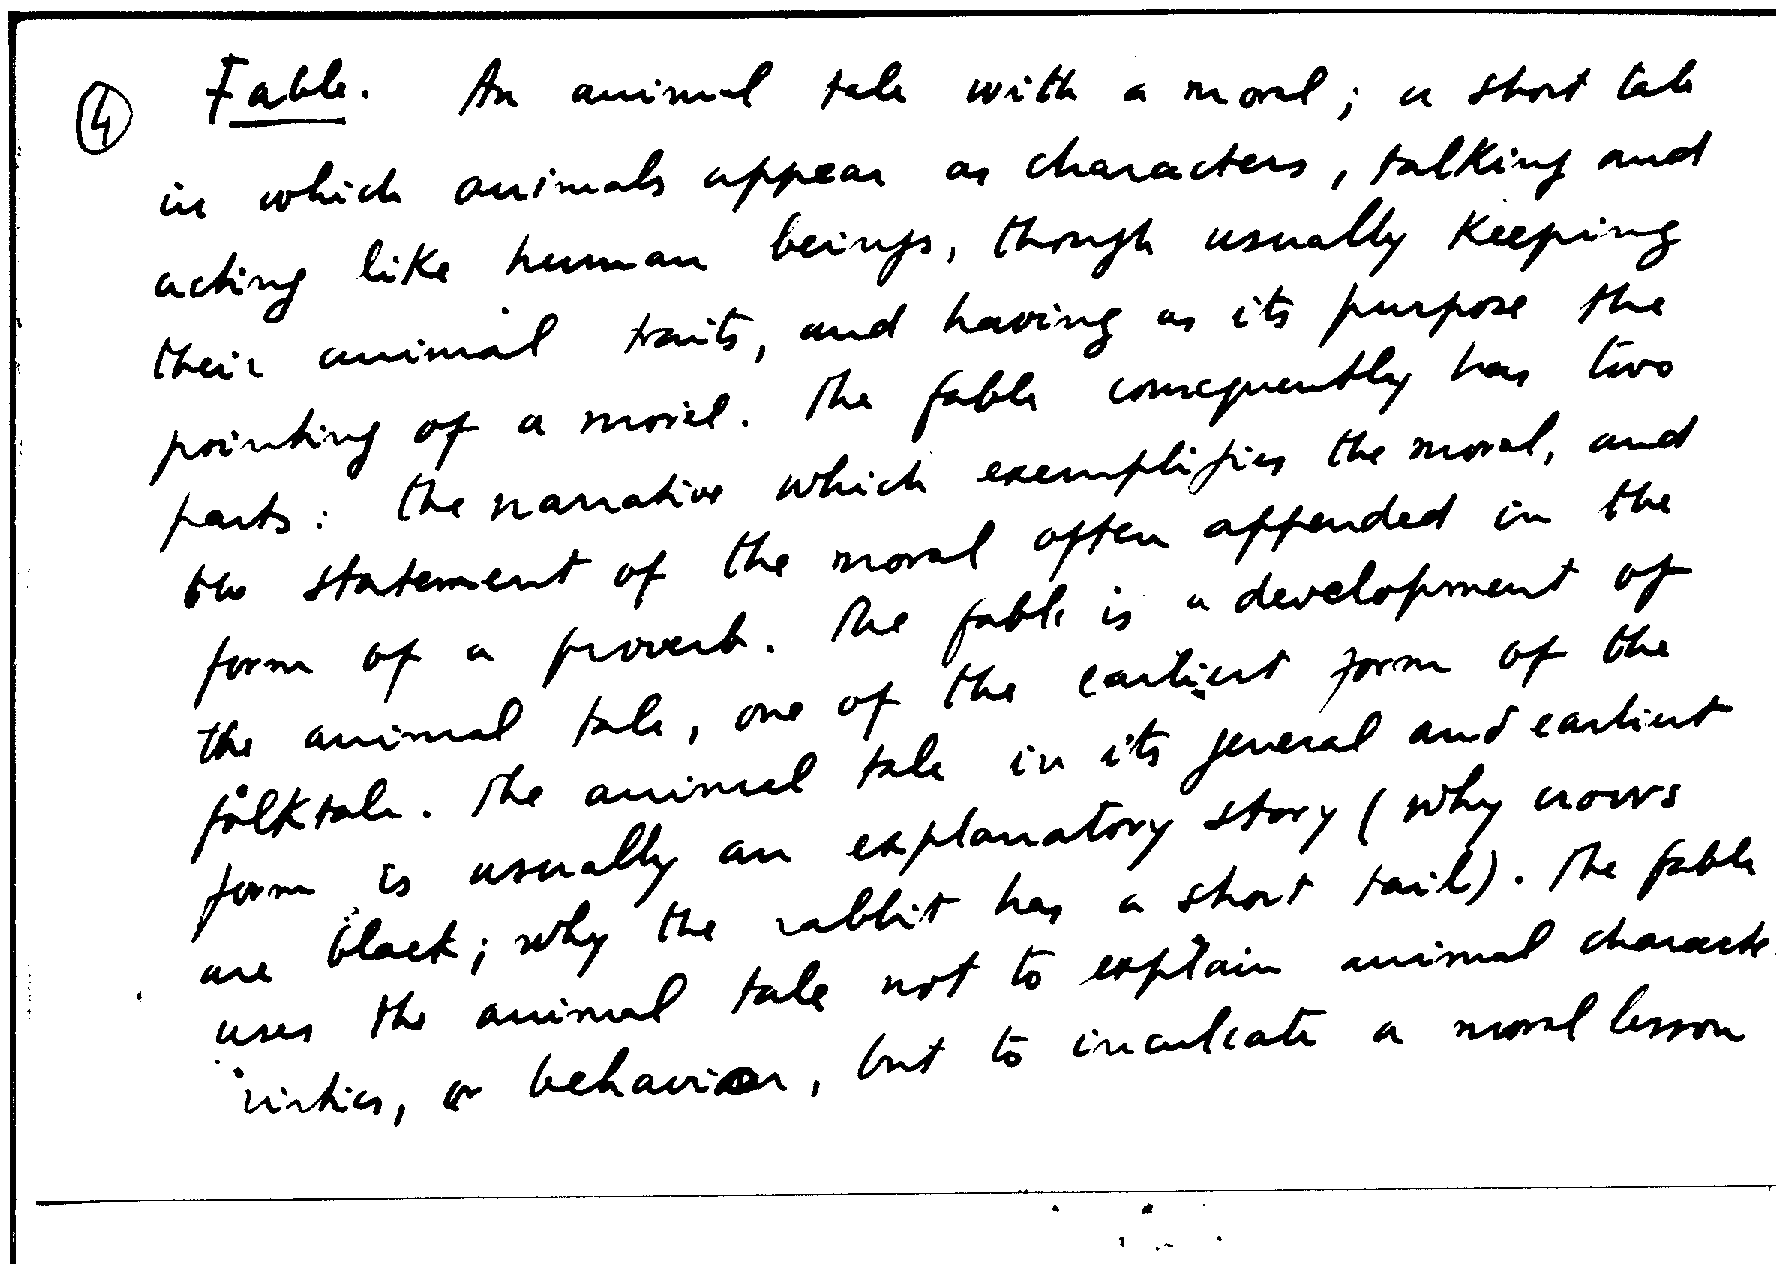 ④ Fable. An animal tale with a moral; a short tale
in which animals appear as characters, talking and
acting like human beings, though usually keeping
their animal traits, and having as its purpose the
pointing of a moral. The fable consequently has two
parts: the narrative which exemplifies the moral, and
the statement of the moral often appended in the
form of a proverb. The fable is a development of
the animal tale, one of the earliest form of the
folktale. The animal tale in its general and earliest
form is usually an explanatory story (why crows
are black; why the rabbit has a short tail). The fable
uses the animal tale not to explain animal characte
ristics, or behavior, but to inculcate a moral lesson